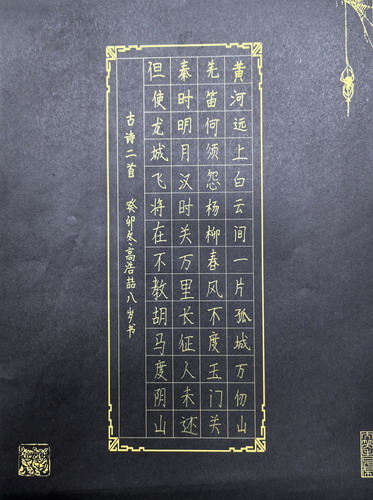 黄河远上白云间一片孤城万仞山
羌笛何须怨杨柳春风不度玉门关
秦时明月汉时关万里长征人未还
但使龙城飞将在不教胡马度阴山
古诗二首 癸卯冬·高浩喆八岁书